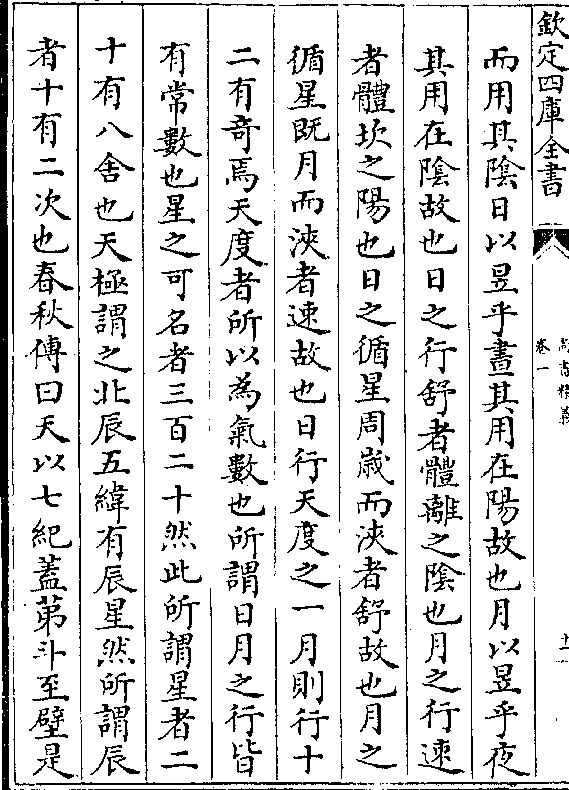 欽定四庫全書
卷一
而用其陰日以昱乎晝其用在陽故也月以昱乎夜
其用在陰故也日之行舒者體離之陰也月之行速
者體坎之陽也日之循星周歲而浹者舒故也月之
循星既月而浹者速故也日行天度之一月則行十
二有奇焉天度者所以為氣數也所謂日月之行皆
有常數也星之可名者三百二十然此所謂星者二
十有八舍也天極謂之北辰五緯有辰星然所謂辰
者十有二次也春秋傳曰天以七紀蓋苐斗至壁是